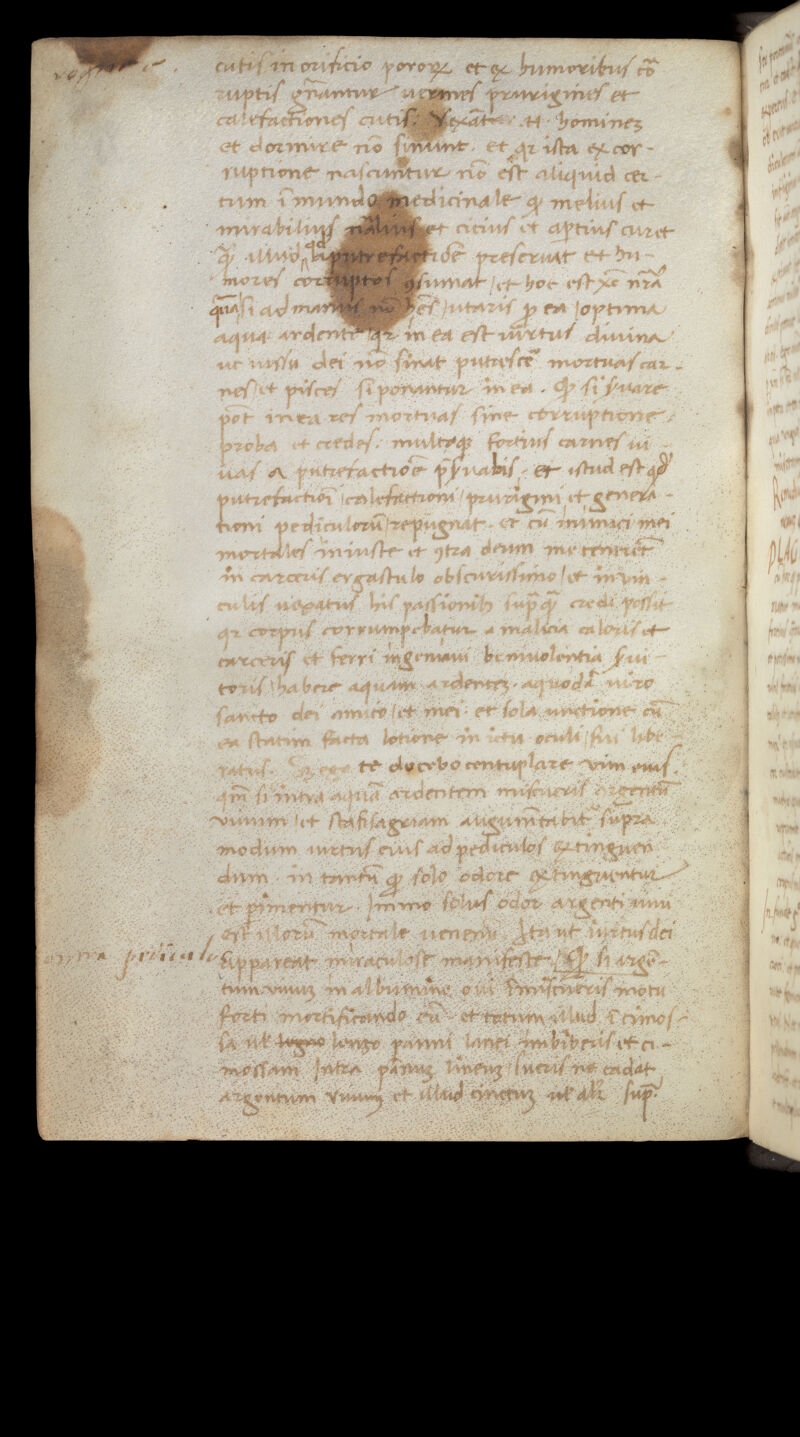 cutis in orificio pororꝝ et ex humoribus cō
ruptis gn̄antur uermes pruriginis et
calefactiones cutis. Vexāt .n. homines
et dormire nō sinunt. et qr ista ex cor-
ruptione nascuntur nō est aliquid cer-
tum ī mundo medicinale qd melius et
mirabilius et cicius et aptius curet
illud putrefactiōē preseruat et hu-
mores corruptos ꝯsumat / et hoc est nrā
si ad manus nō hēs / utaris ea / optima
aqua ardente qr in ea est uirtus diuina
ut iussu dei nō sinat putrescē mortuas car-
nes / et pisces si ponantur in ea. si ẜuare
pōt in ea res mortuas sine corruptione.
proba et credes. fortius carnes ui-
uas a putrefactiōē p̄ẜuabis. et istud est qd
putrefactiōi / calefactioni / prurigini et genera-
tioni pediculorū / repugnat. et cū inimici mei
mortales iniuste et ꝯtra deum me tenerēt
in carceris ergastulo obscurissimo / et in uin-
culis uexatus his passionibȝ sup̄qͣ credi possit
qr corpus corrumpebatur a malicia caloris et
carceris et ferri ingeniaui beniuolentia ẜui-
toris / habere aquam ardentez. a quodā uiro
sancto dei amico / et mei. et sola unctione cū
ea statim facta lotione in ictu oculi / fui libe-
ratus. te docebo centuplare uim eius.
qm̄ si intra aquā ardentem miscueris argentū
viuum / et stafisagriam augumētabitᷣ supra
modum uirtus eius ad pediculos extinguen
dum. in tantū qd solo odore extinguentur
et pīmentur. Immo solus odor argenti uiui
est illorū mortale uenenū. Ita ut uirtus dei
appareat miraculose manifeste. si argē-
tum uiuuȝ in albumine oui ī̄miscueris motu
forti mortificando eū. et totum illud ī cimos-
sa uł longo panni lanei imbiberis et ci-
mossam intra pānuȝ lineuȝ / sueris ne cadat
argentum viuuȝ et illud cinctuȝ uł alr̄ sup̄